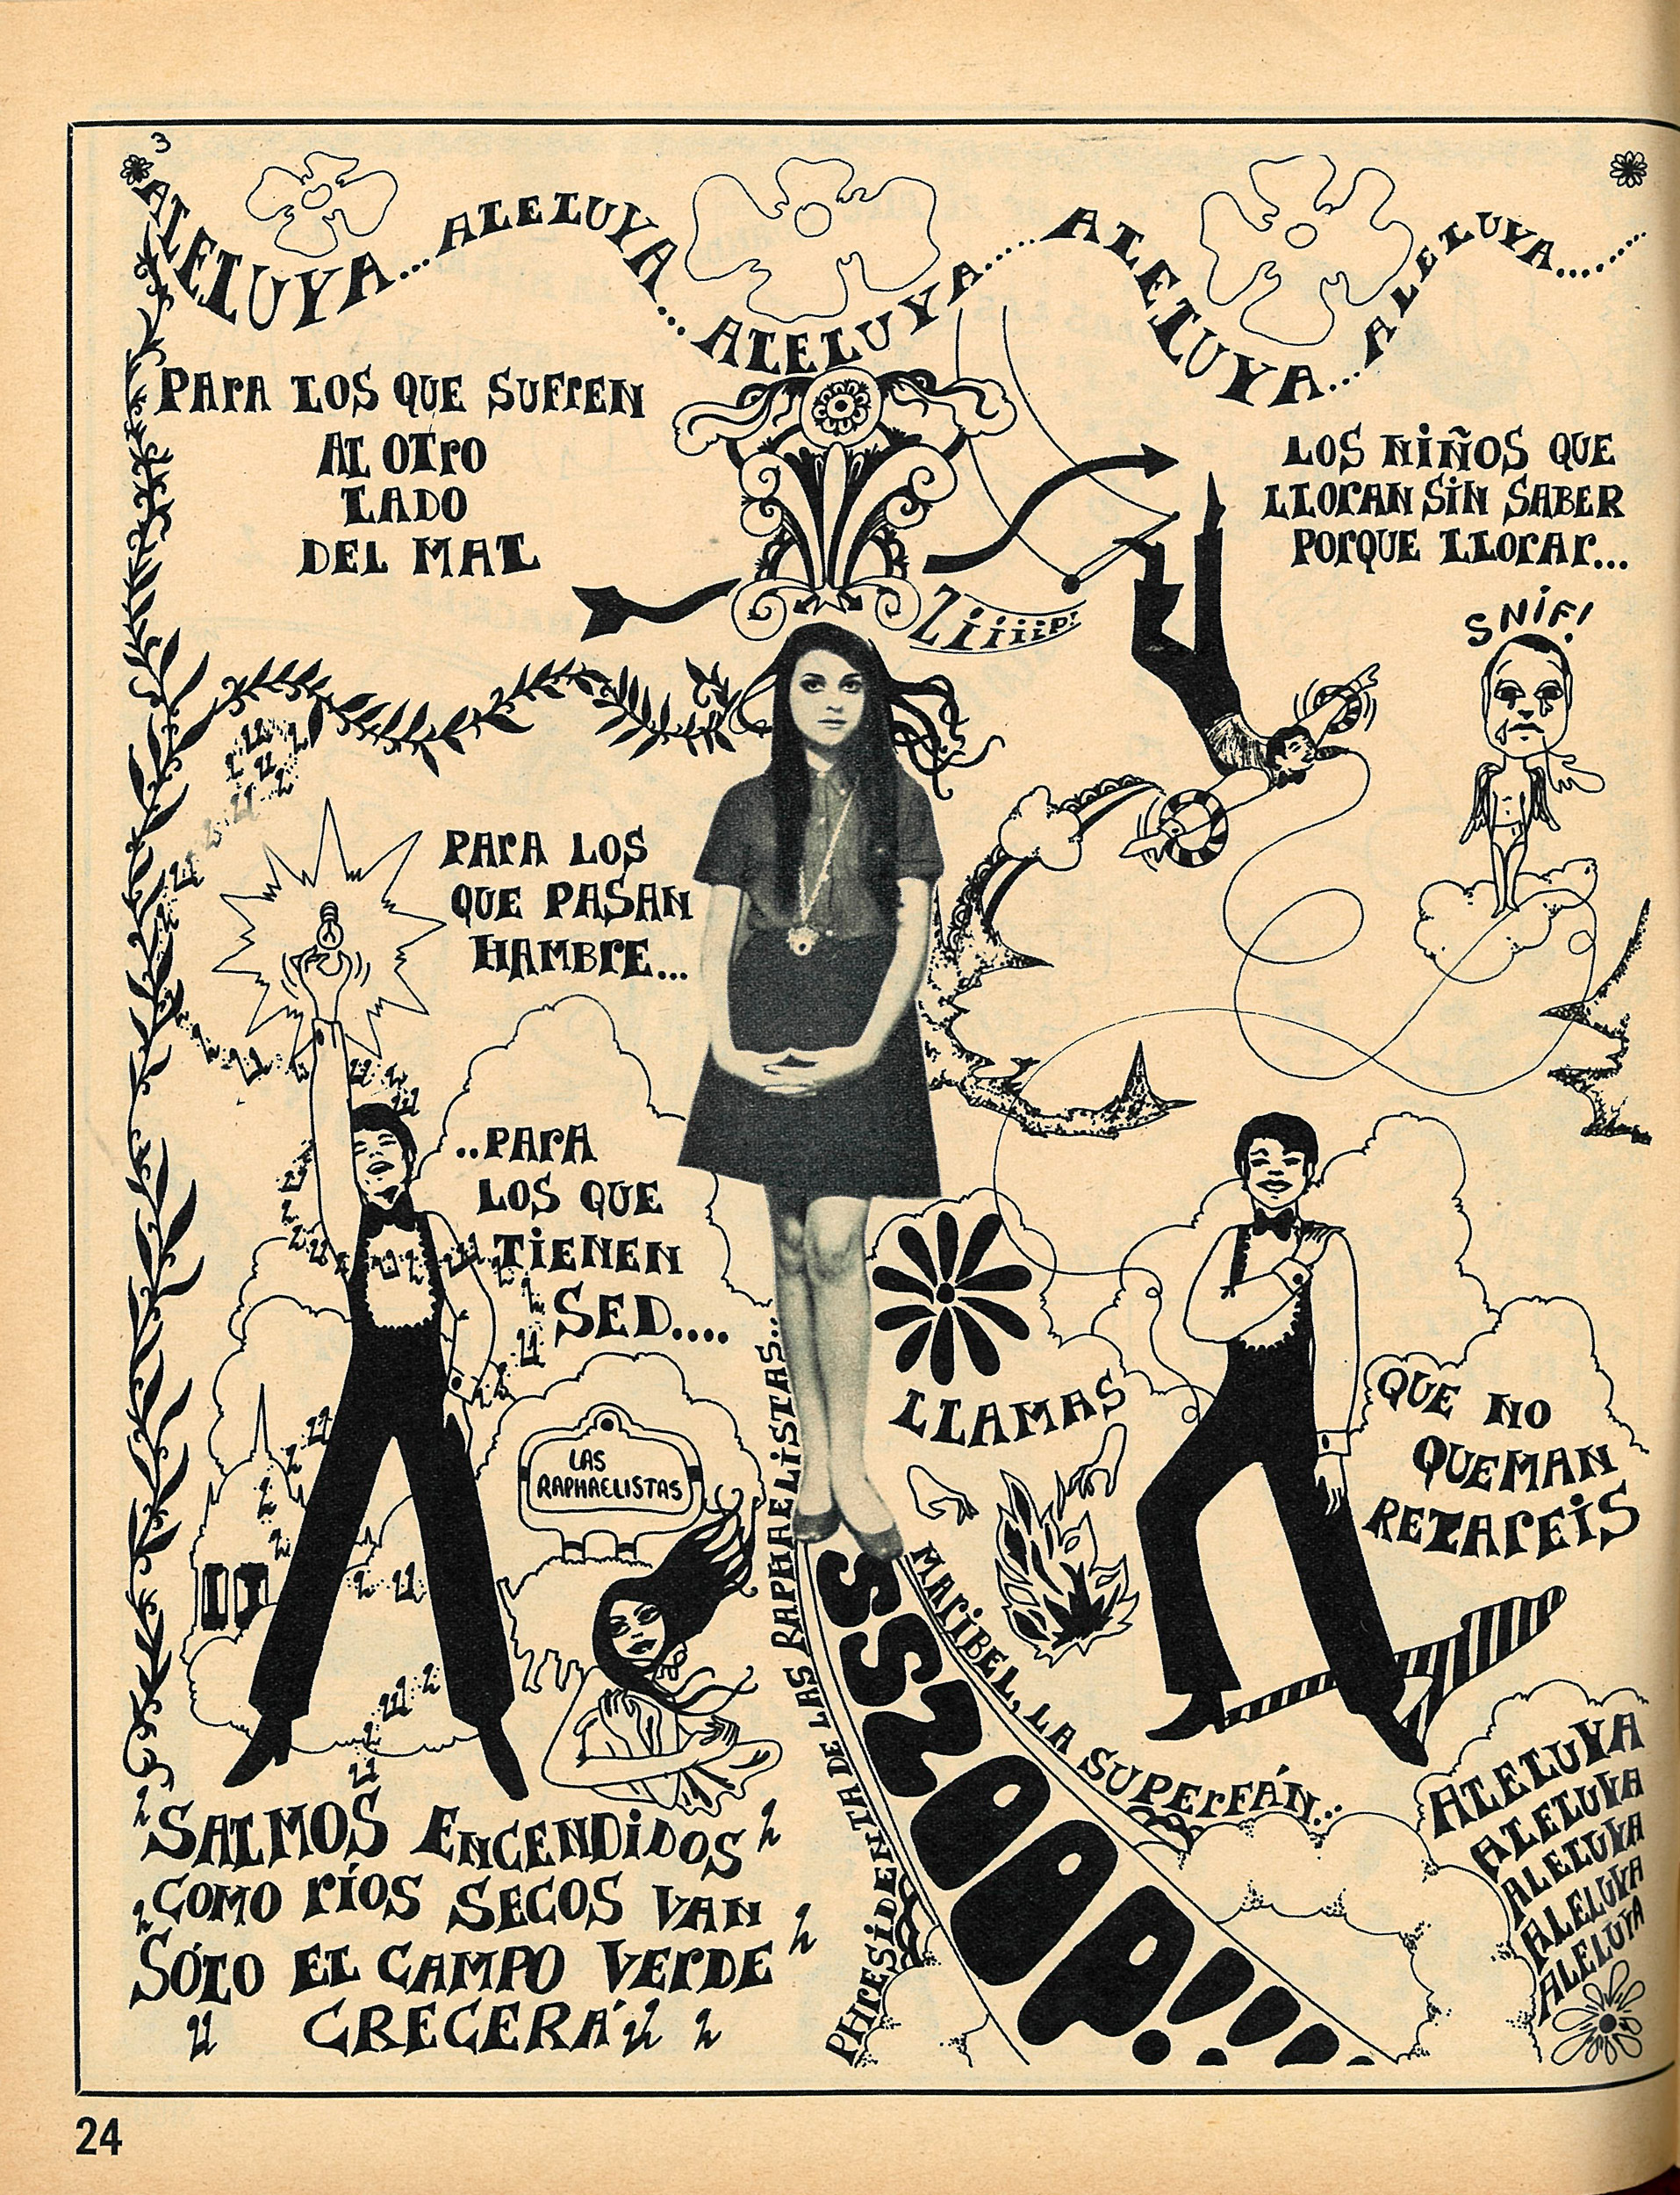 3
ALELUYA... ALELUYA... ALELUYA..... ALELUYA... ALELUYA.........
PARA LOS QUE SUFREN
AL OTRO
LADO
DEL MAL
LOS NIÑOS QUE
LLORAN SIN SABER
PORQUE LLORAR...
Ziiiip!
SNIF!
PARA LOS
QUE PASAN
HAMBRE...
..PARA
LOS QUE
TIENEN
SED....
LAS
RAPHAELISTAS
LLAMAS
QUE NO
QUEMAN
REZAREIS
PHRESIDENTA DE LAS RAPHAELISTAS...
MARIBEL, LA SUPERFÁN...
SSZOOP!!!
SALMOS ENCENDIDOS
COMO RÍOS SECOS VAN
SÓLO EL CAMPO VERDE
CRECERÁ
ALELUYA
ALELUYA
ALELUYA
ALELUYA
ALELUYA
24